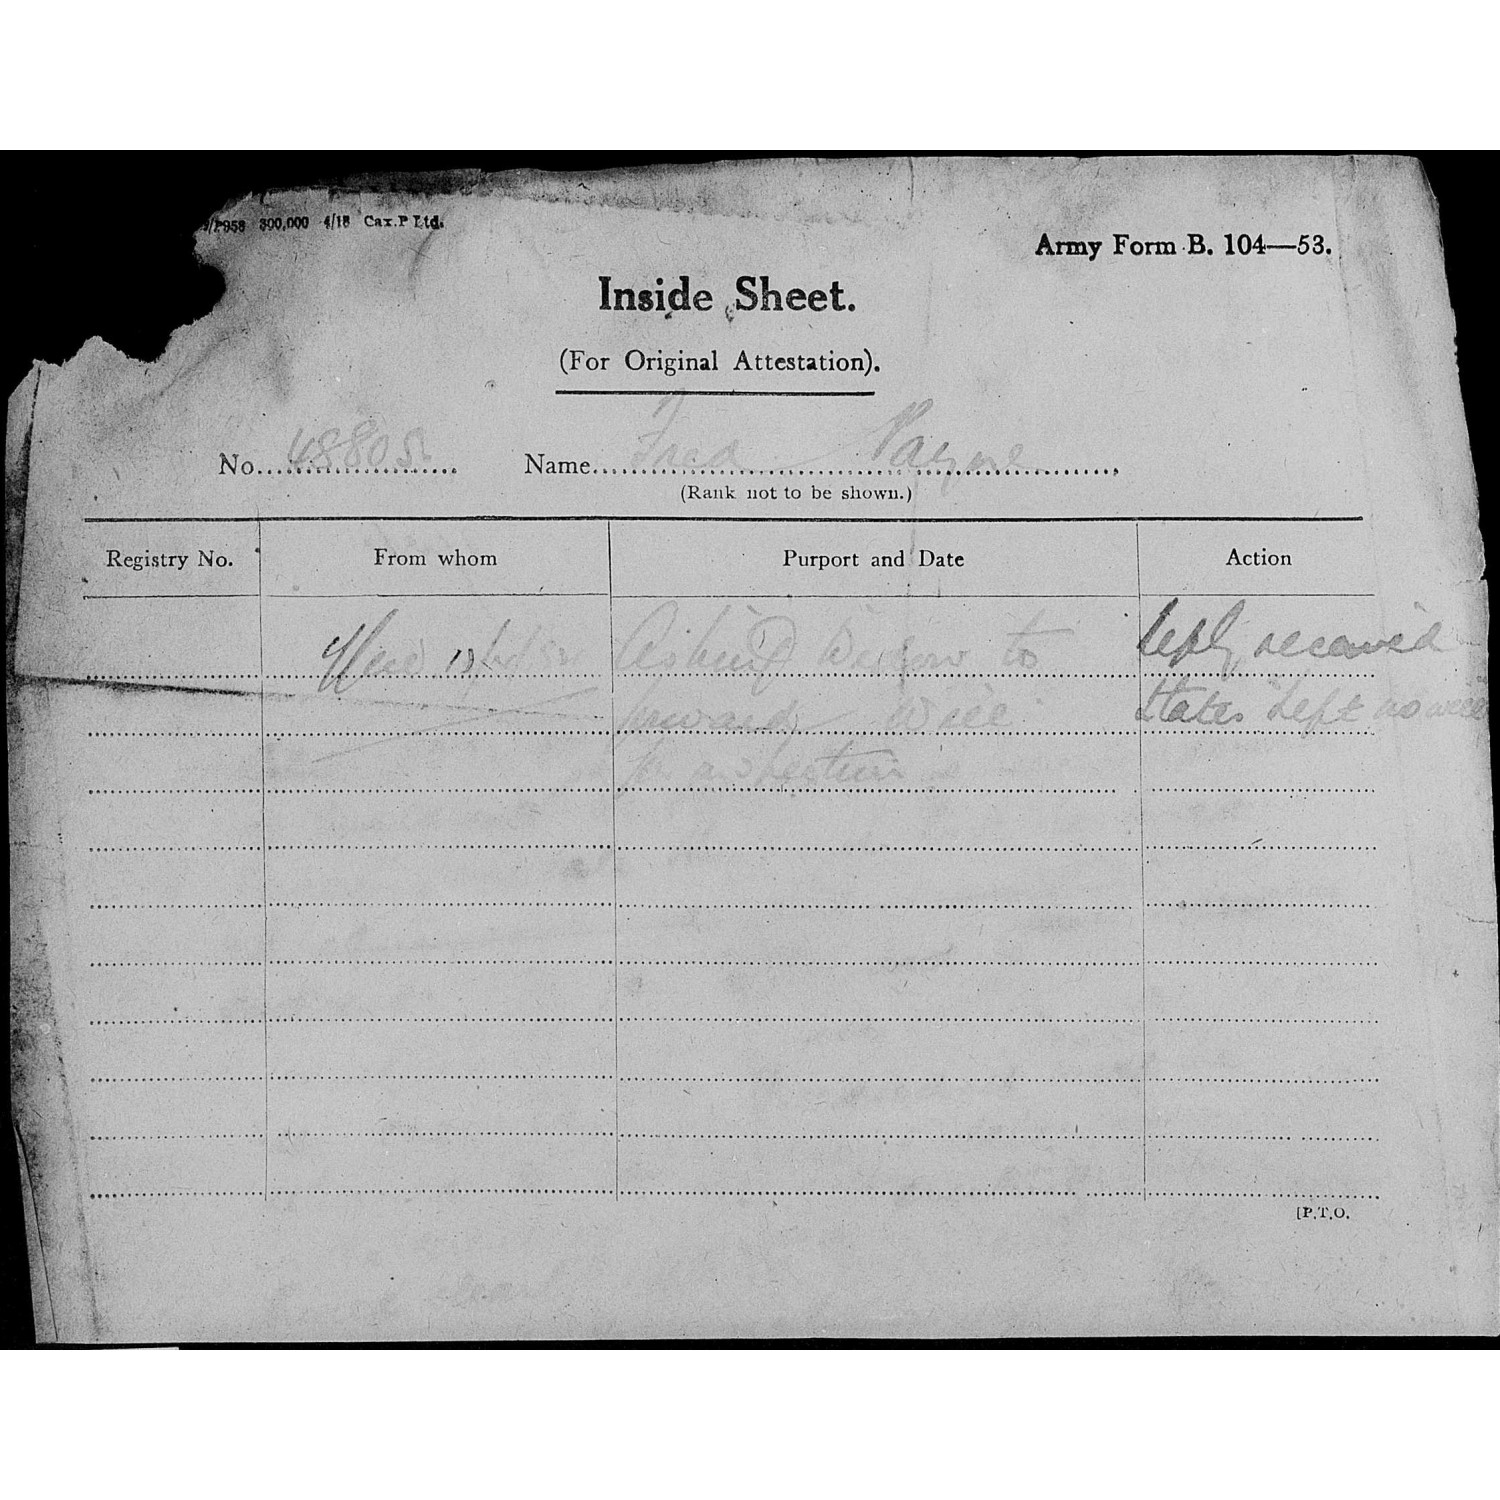 /P958 300,000 4/18 Cax.P Ltd.
Army Form B. 104—53.
Inside Sheet.
(For Original Attestation).
No. 48805 Name. Fred Payne
(Rank not to be shown.)
Registry No. From whom Purport and Date Action
Asking Widow to reply received
forward Will States "left no will"